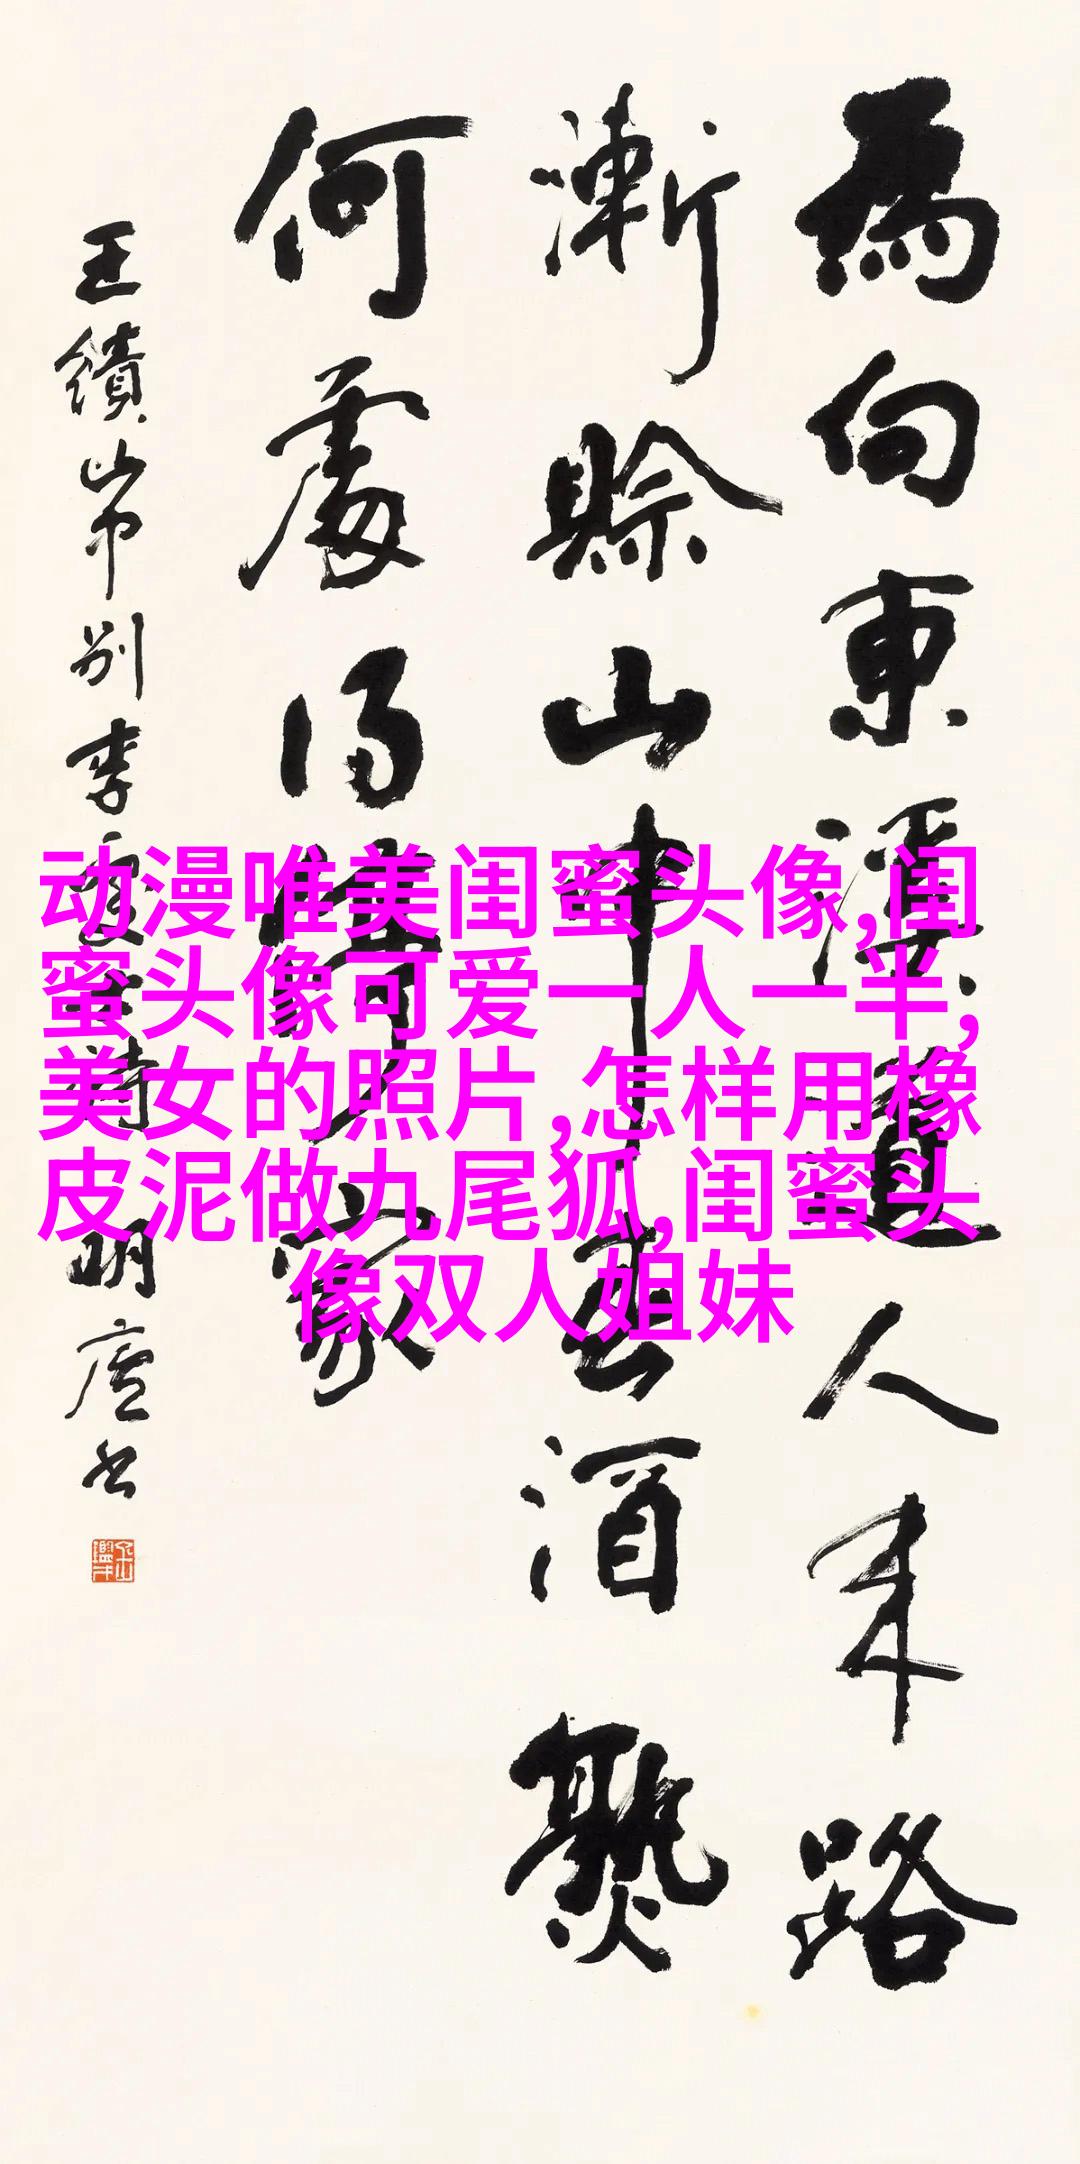 為向東溪道人来路
漸賒山中春酒熟
何處得停家
王績山中别李處士詩 明廬书
动漫唯美闺蜜头像,闺
蜜头像可爱一人一半,
美女的照片,怎样用橡
皮泥做九尾狐,闺蜜头
像双人姐妹